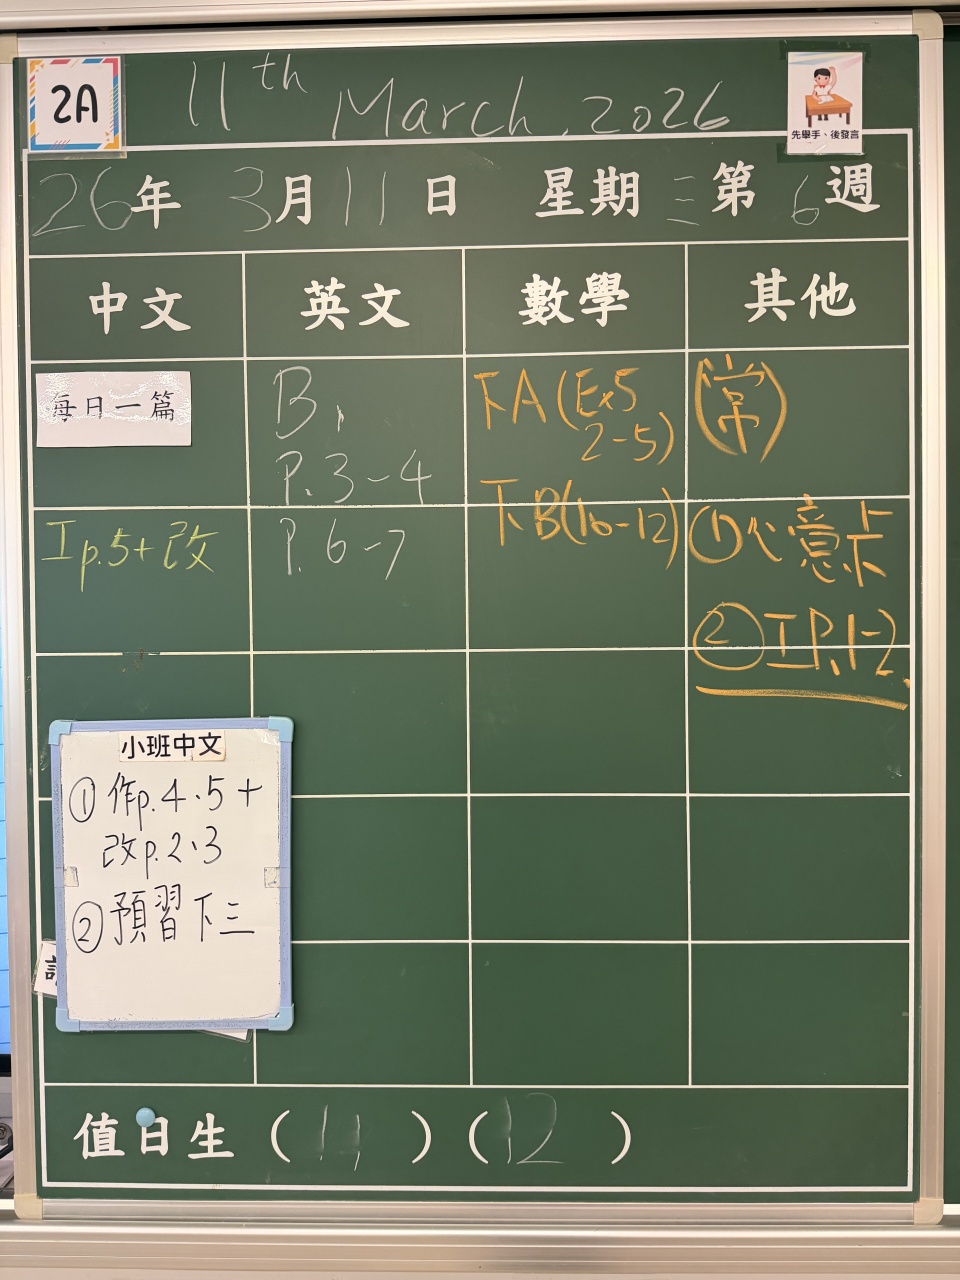 2A
11th March, 2026
先舉手、後發言
26年 3月 11日 星期三 第6週
中文 英文 數學 其他
每日一篇
工p.5+改
B,
P.3-4
P.6-7
下A(Ex5
2-5)
下B(10-12)
(常)
①心意卡
②工P.1-2
小班中文
①作p.4、5+
改p.2、3
②預習下三
值日生 (11) (12)